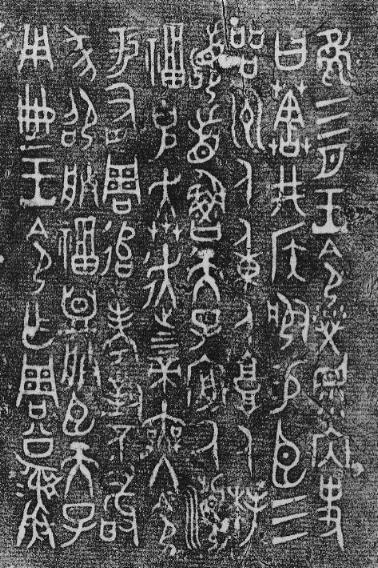 隹三月王令𤇾眔內史
曰𦯗井侯服易臣三
品州人重人𩫏人拜
𩒨首魯天子厥瀕
福克奔走上下帝無冬令
于有周追考對不敢
㒸卲朕福盟朕臣天子
用典王令乍周公彝